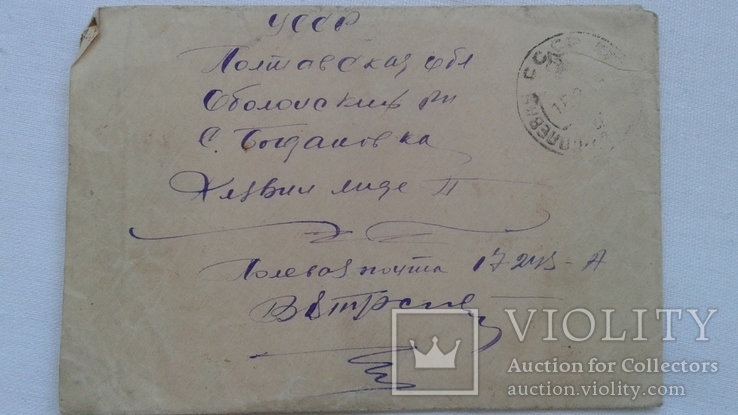 УССР
Полтавская обл
Оболонский рн
с. Богдановка
лиде П
Полевая почта 17243-А
СССР
VIOLITY
Auction for Collectors
auction.violity.com